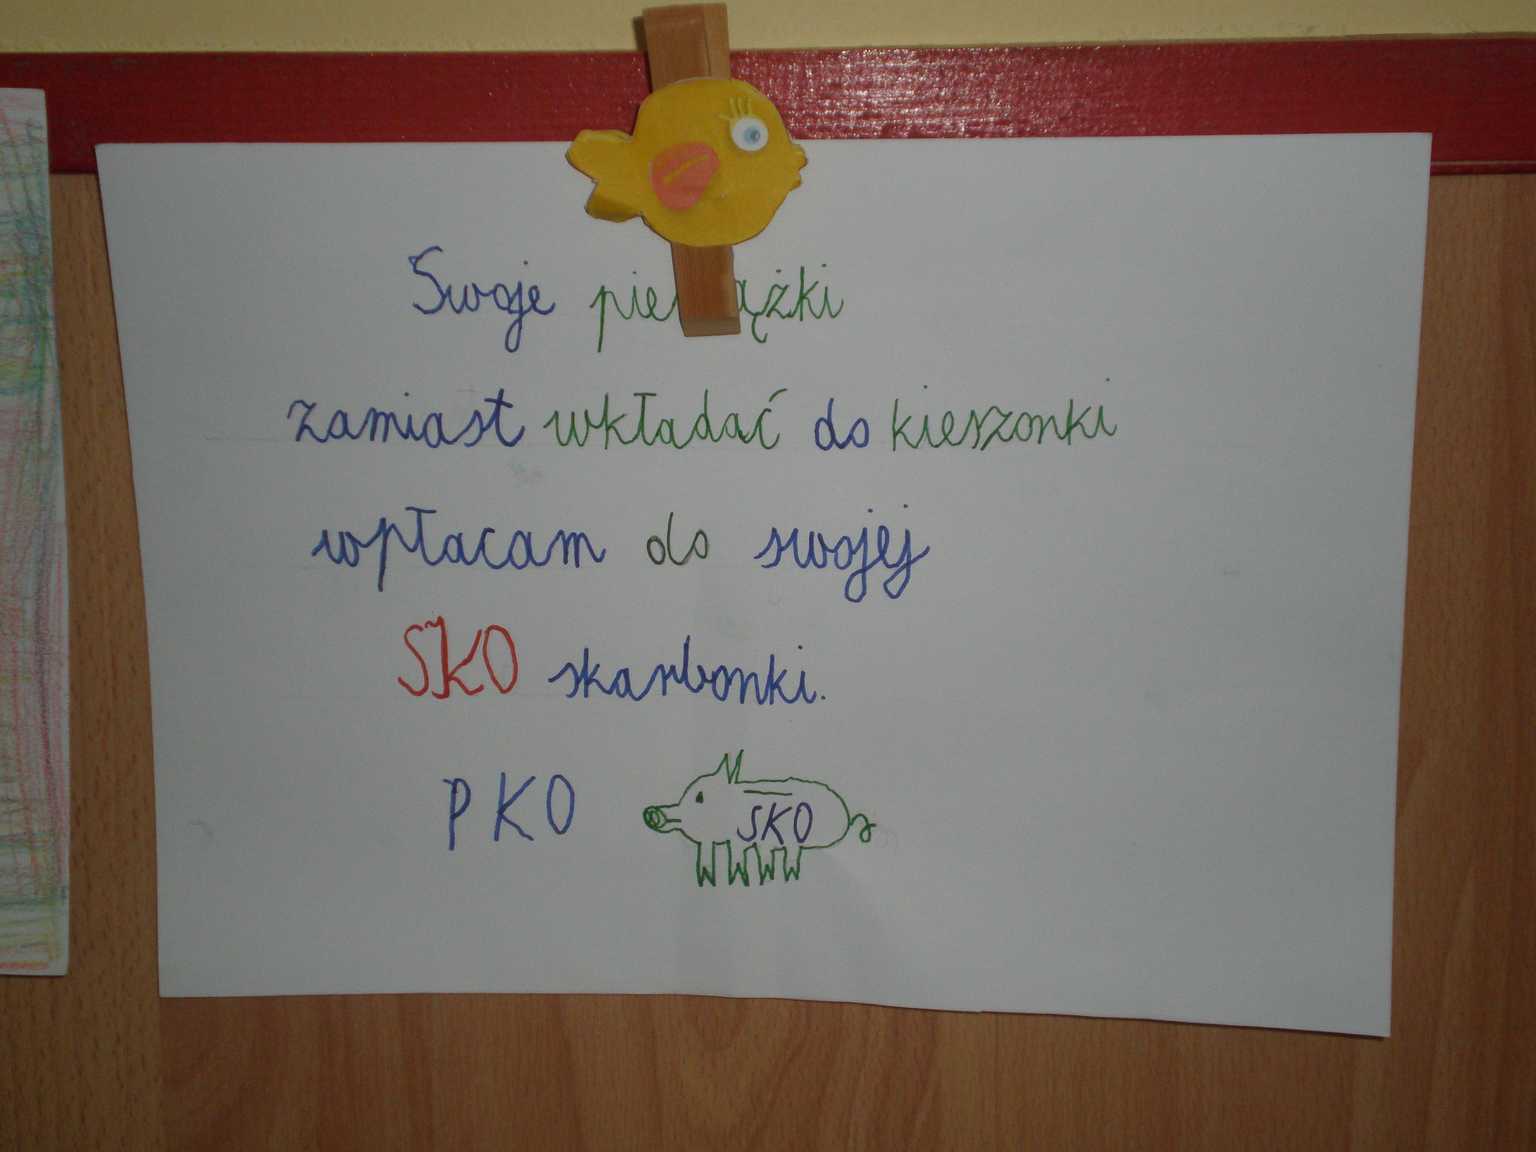 Swoje pieniążki
zamiast wkładać do kieszonki
wpłacam do swojej
SKO skarbonki.
PKO SKO